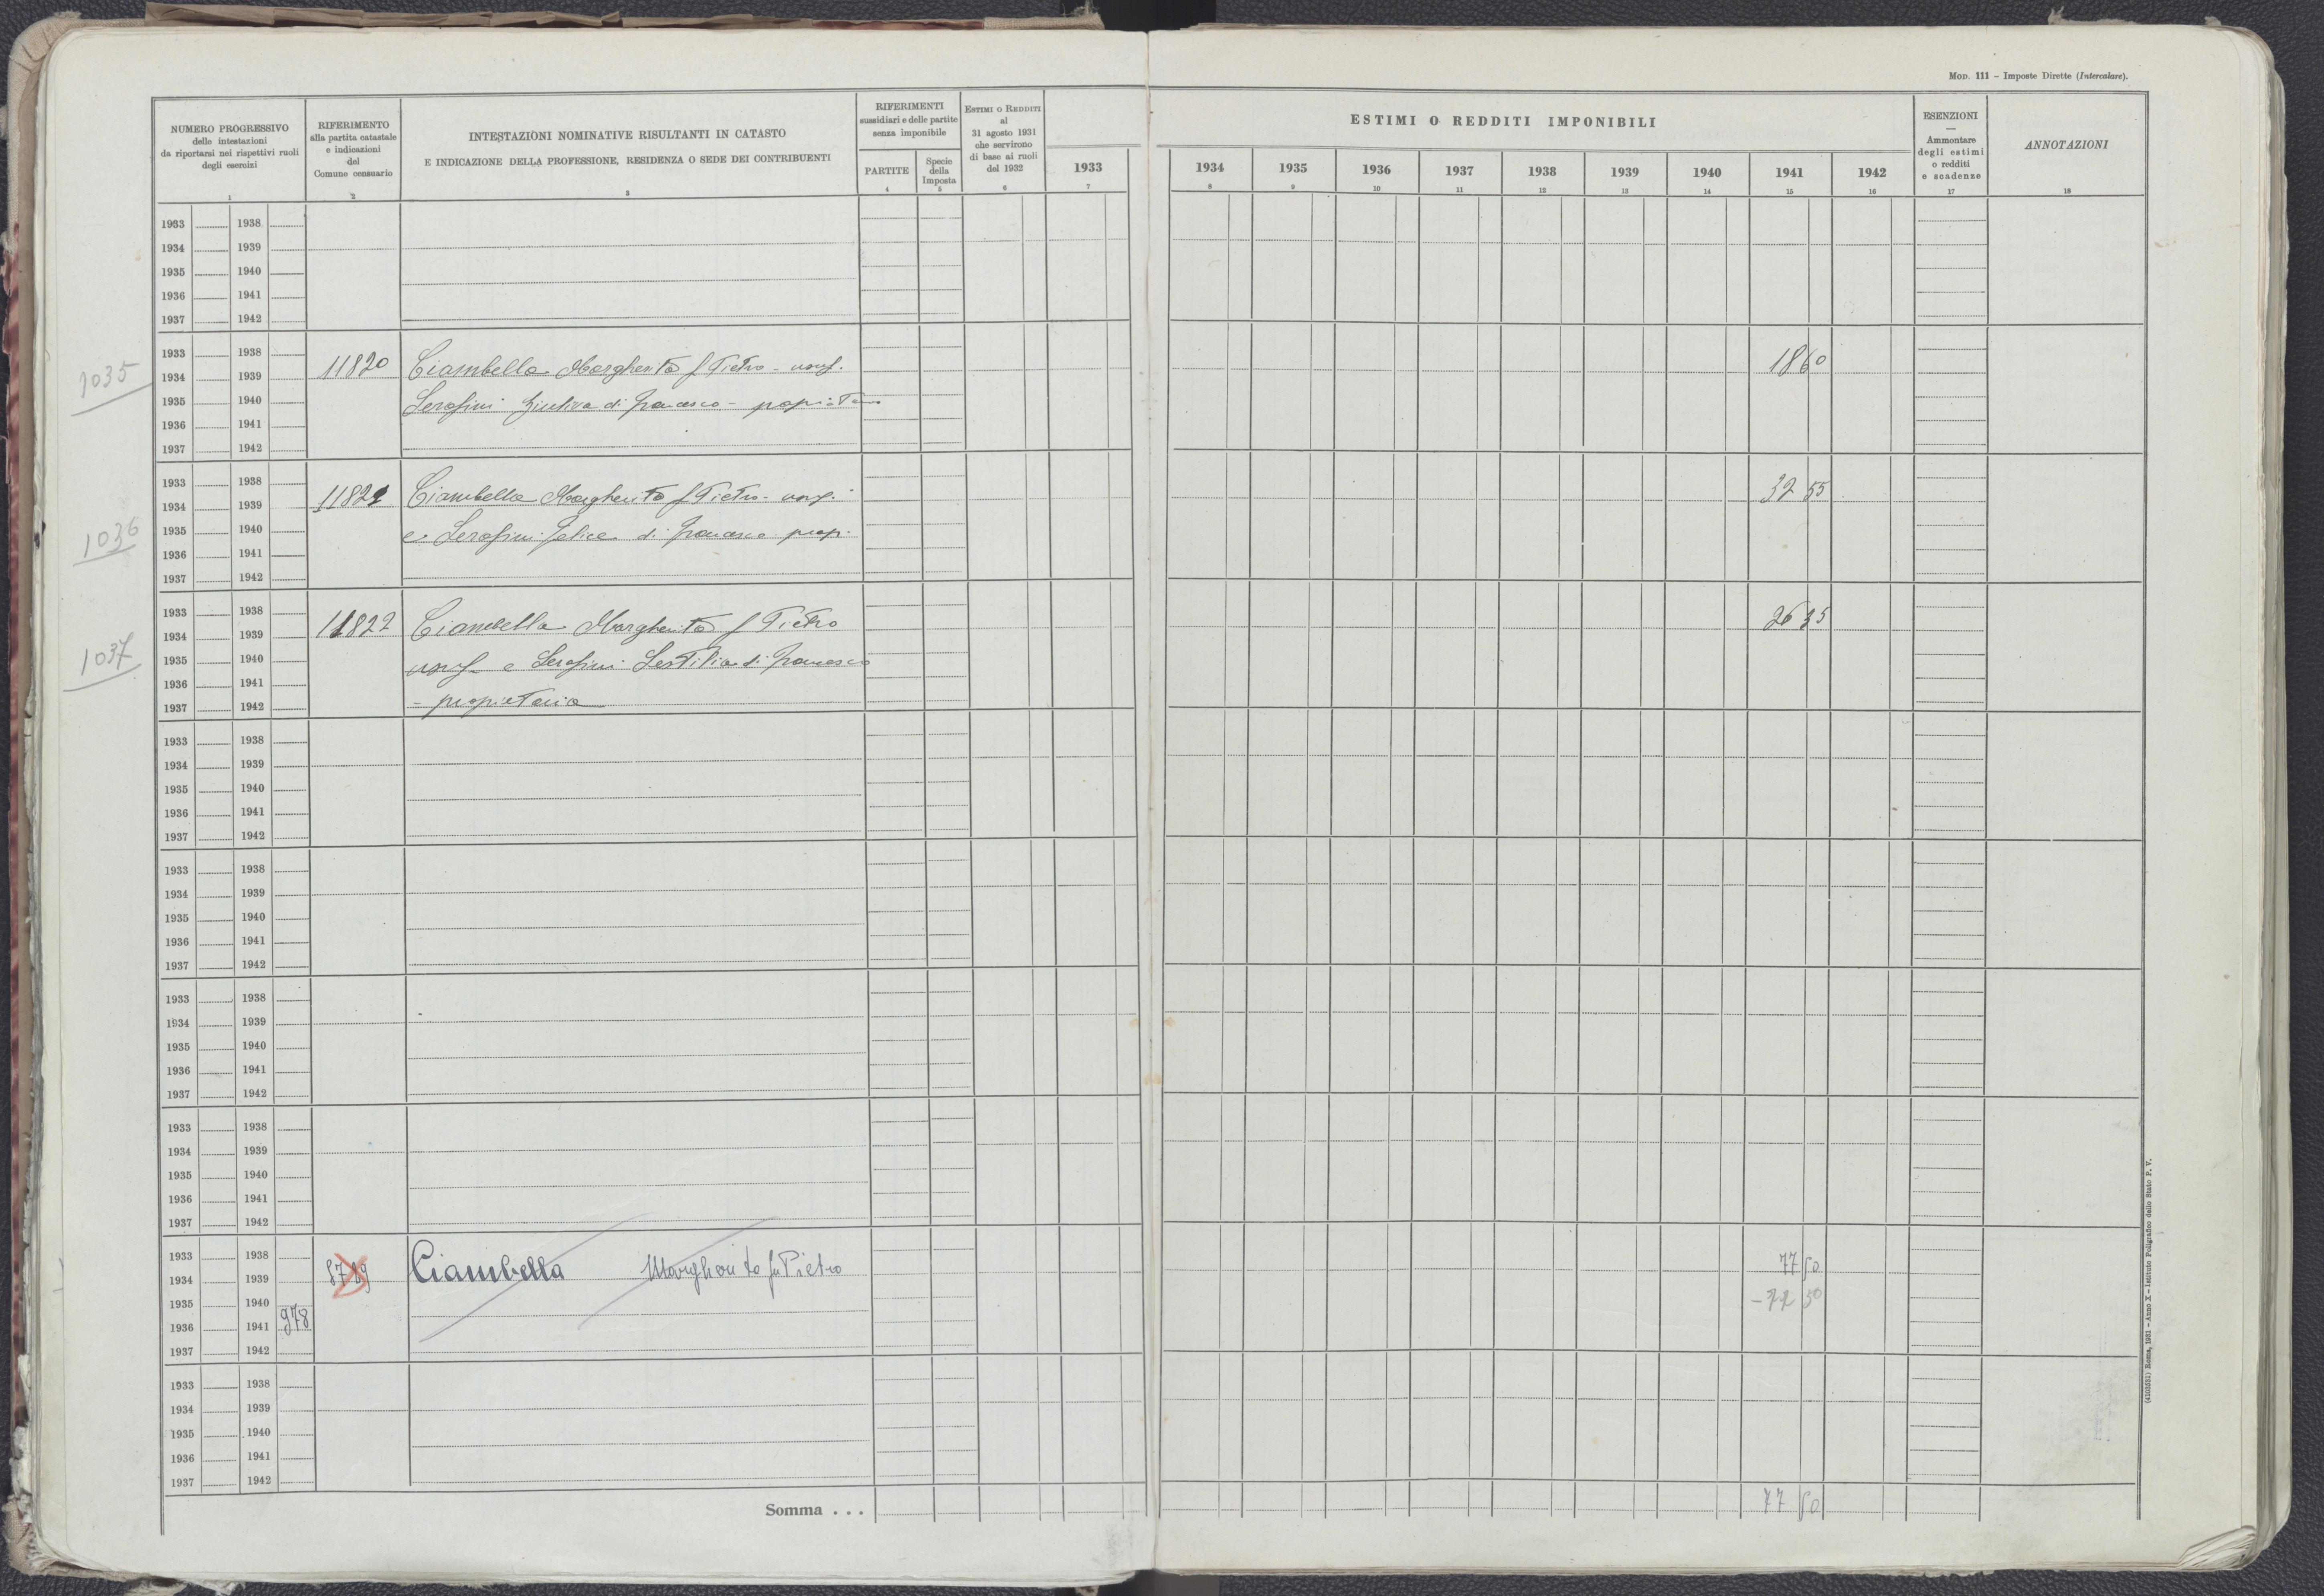 Mod. 111 – Imposte Dirette (Intercalare).
NUMERO PROGRESSIVO
delle intestazioni
da riportarsi nei rispettivi ruoli
degli esercizi
1
RIFERIMENTO
alla partita catastale
e indicazioni
del
Comune censuario
2
INTESTAZIONI NOMINATIVE RISULTANTI IN CATASTO
E INDICAZIONE DELLA PROFESSIONE, RESIDENZA O SEDE DEI CONTRIBUENTI
3
RIFERIMENTI
sussidiari e delle partite
senza imponibile
PARTITE
4
Specie
della
Imposta
5
Estimi o Redditi
al
31 agosto 1931
che servirono
di base ai ruoli
del 1932
6
1933
7
ESTIMI O REDDITI IMPONIBILI
1934 1935 1936 1937 1938 1939 1940 1941 1942
8 9 10 11 12 13 14 15 16
ESENZIONI
—
Ammontare
degli estimi
o redditi
e scadenze
17
ANNOTAZIONI
18
1933 1938
1934 1939
1935 1940
1936 1941
1937 1942
1035
1933 1938
11820 Ciambella Margherita f Pietro - usuf. 18 60
1934 1939
1935 1940 Serafini Giulira di Francesco - proprietaria
1936 1941
1937 1942
1036
1933 1938
11821 Ciambella Margherita f Pietro - usuf. 32 55
1934 1939
1935 1940 e Serafini Felice di Francesco propr.
1936 1941
1937 1942
1037
1933 1938
11822 Ciambella Margherita f Pietro 26 35
1934 1939
1935 1940 usuf - e Serafini Sestilia di Francesco
1936 1941
1937 1942 - proprietaria
1933 1938
1934 1939
1935 1940
1936 1941
1937 1942
1933 1938
1934 1939
1935 1940
1936 1941
1937 1942
1933 1938
1934 1939
1935 1940
1936 1941
1937 1942
1933 1938
1934 1939
1935 1940
1936 1941
1937 1942
1933 1938
Ciambella Margherita fu Pietro 77 50
1934 1939
1935 1940 50
1936 1941 978
1937 1942
1933 1938
1934 1939
1935 1940
1936 1941
1937 1942
Somma . . . 77 50
(4103551) Roma, 1931 – Anno X – Istituto Poligrafico dello Stato P. V.